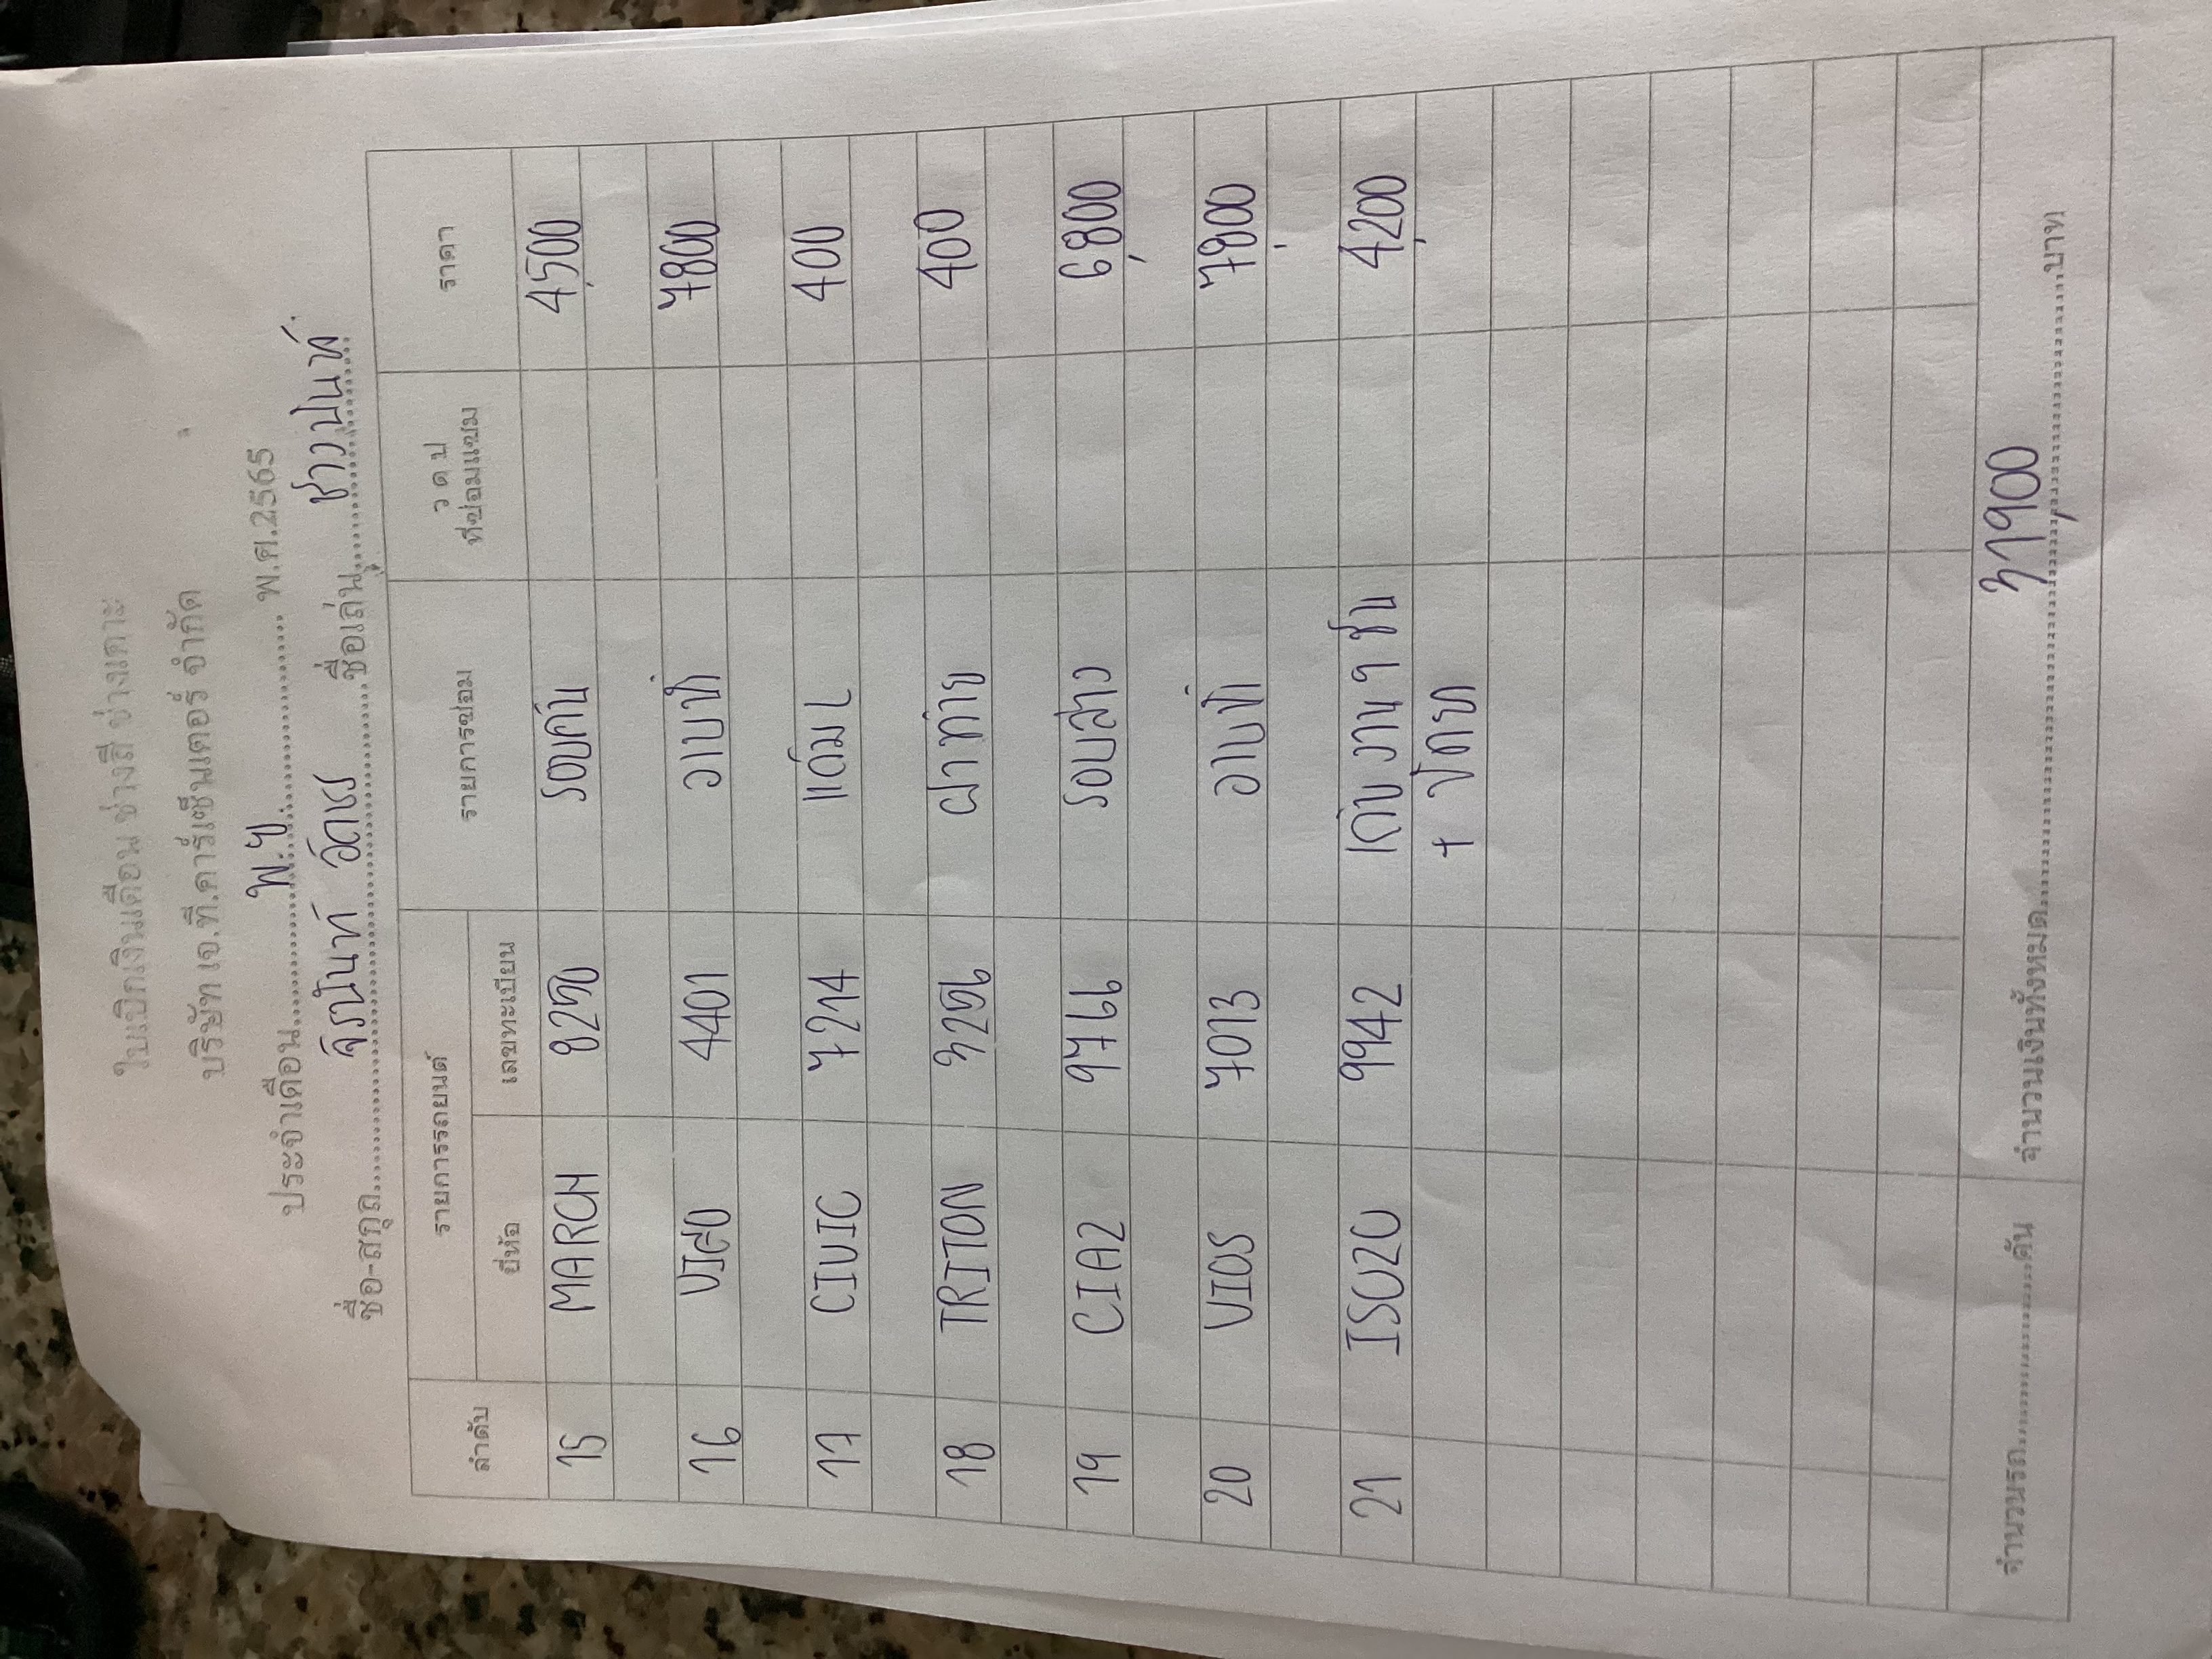 ใบเบิกเงินเดือน ช่างสี ช่างเคาะ
บริษัท เอ.ที.คาร์เซ็นเตอร์ จำกัด
ประจำเดือน พ.ย. พ.ศ.2565
ชื่อ-สกุล จิรนันท์ ชื่อเล่น
ลำดับ รายการรถยนต์ รายการซ่อม ว ด ป ราคา
ยี่ห้อ เลขทะเบียน ที่ซ่อมแซม
15 MARCH 8250 รอบคัน 4,500
16 7800
17 CIVIC 7214 แต้ม L 400
18 TRITON 3256 ฝาท้าย 400
19 CIAZ 9766 รอบสาว 6,800
20 VIOS 7013 7,800
21 ISUZU 9942 เก็บงาน 9 ชิ้น 4,200
+
จำนวนรถ คัน จำนวนเงินทั้งหมด 31,900 บาท